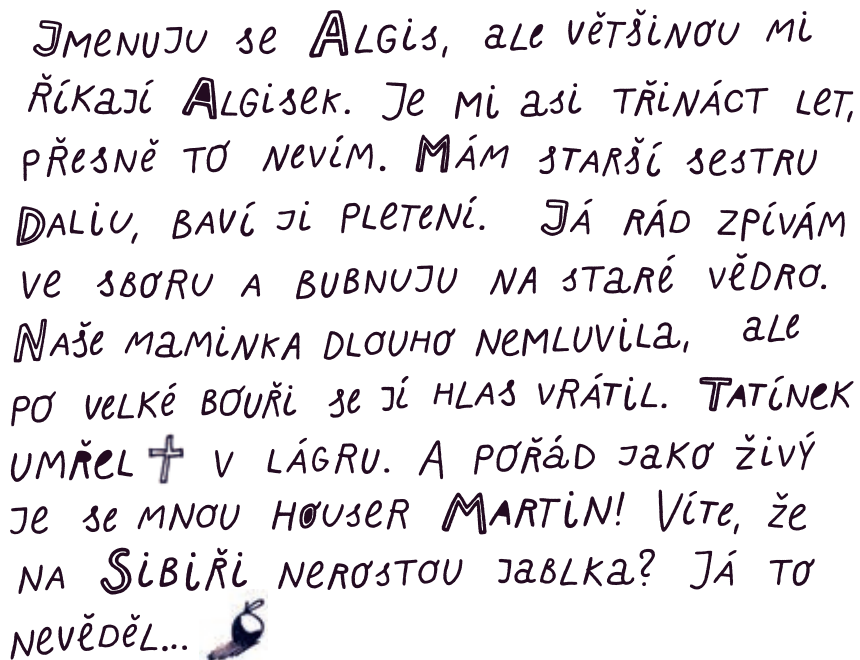 Jmenuju se Algis, ale většinou mi
říkají Algisek. Je mi asi třináct let,
přesně to nevím. Mám starší sestru
Daliu, baví ji pletení. Já rád zpívám
ve sboru a bubnuju na staré vědro.
Naše maminka dlouho nemluvila, ale
po velké bouři se jí hlas vrátil. Tatínek
umřel v lágru. A pořád jako živý
je se mnou houser Martin! Víte, že
na Sibiři nerostou jablka? Já to
nevěděl...